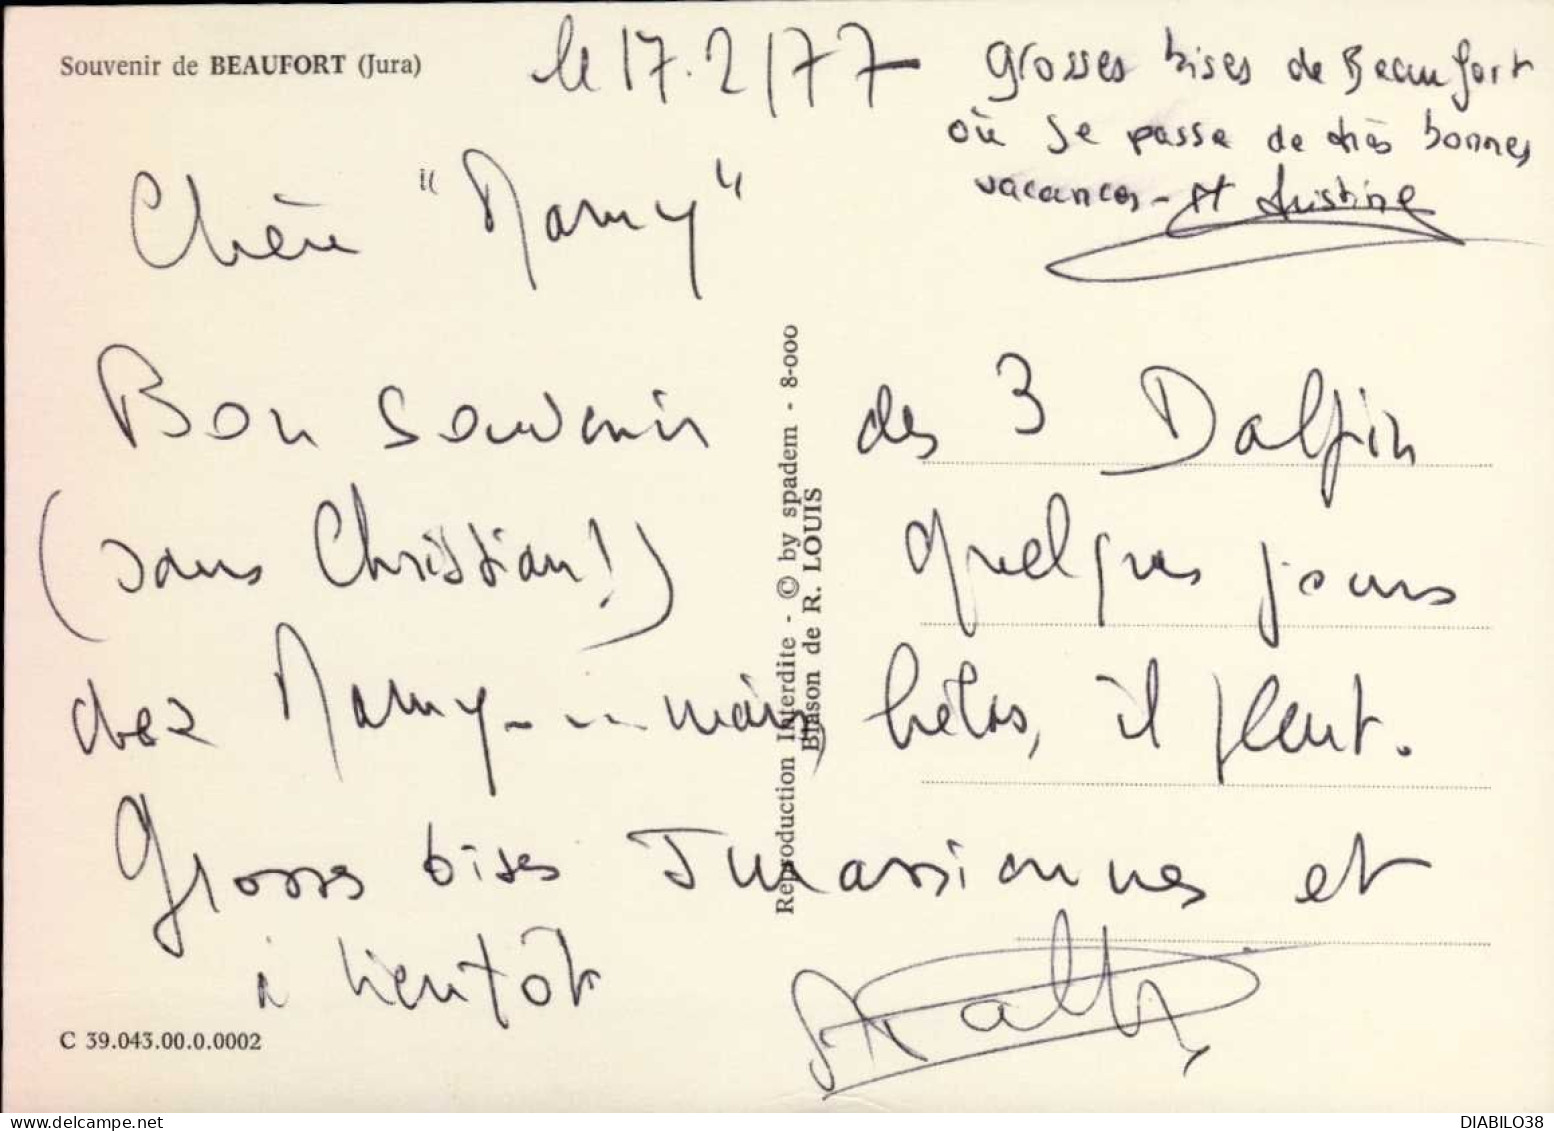 Souvenir de BEAUFORT (Jura)
le 17.2/77
Grosses bises de Beaufort
où se passe de très bonnes
vacances -
Chère "Mamy"
Bon souvenir des 3 Dalfin
(sans Christian!) quelques jours
chez Mamy - ... mais, hélas, il pleut.
Grosses bises Jurassiennes et
à bientôt
Reproduction Interdite - © by spadem - 8-000
Blason de R. LOUIS
C 39.043.00.0.0002
DIABILO38